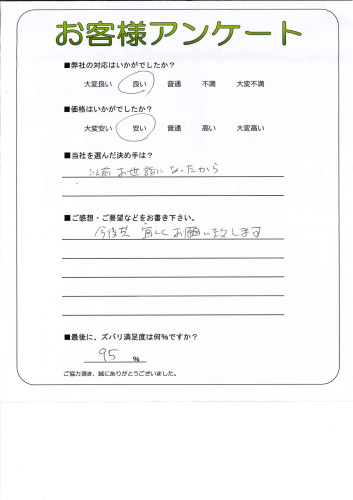 お客様アンケート
■弊社の対応はいかがでしたか？
大変良い 良い 普通 不満 大変不満
■価格はいかがでしたか？
大変安い 安い 普通 高い 大変高い
■当社を選んだ決め手は？
以前お世話になったから
■ご感想・ご要望などをお書き下さい。
今後共 宜しくお願い致します
■最後に、ズバリ満足度は何%ですか？
95 %
ご協力頂き、誠にありがとうございました。